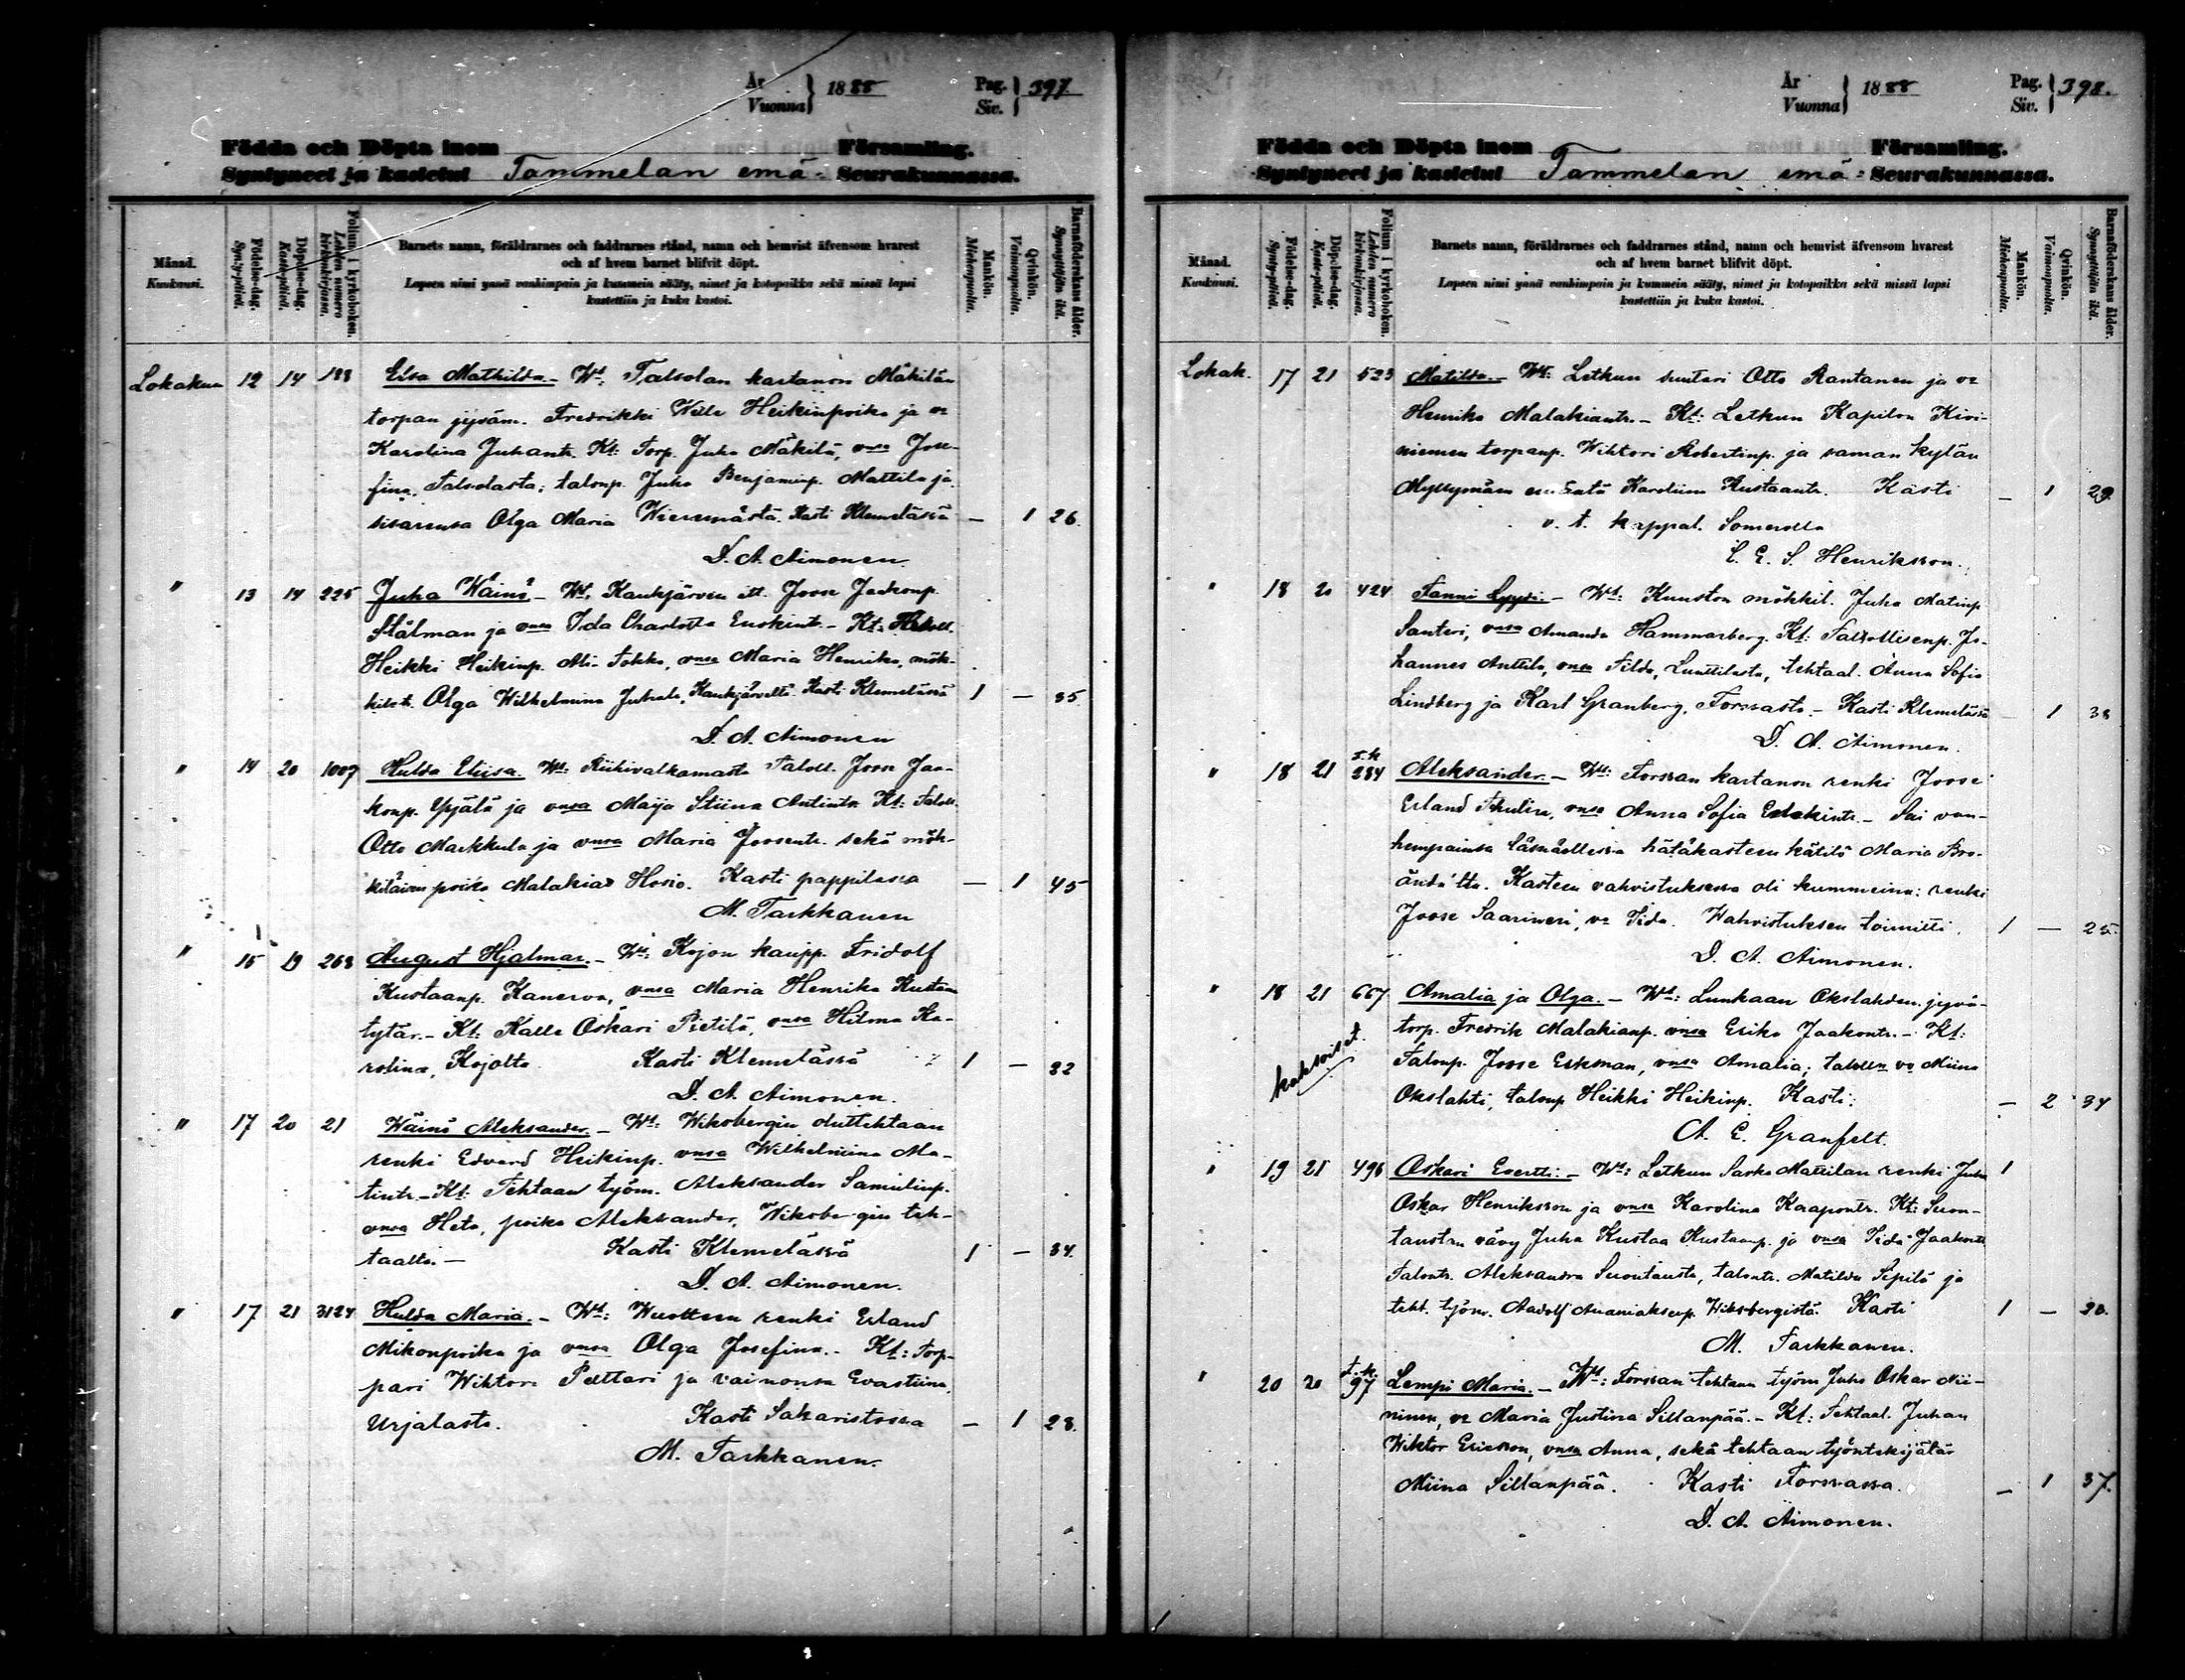 År
Vuonna } 1888
Pag.
Siv. } 397
Födda och Döpta inom Församling.
Syntyneet ja kastetut Tammelan emä- Seurakunnassa.
Månad.
Kuukausi.
Födelse-dag.
Synty-päivä.
Döpelse-dag.
Kaste-päivä.
Folium i kyrkoboken.
Lehden numero kirkonkirjassa.
Barnets namn, föräldrarnes och faddrarnes stånd, namn och hemvist äfvensom hvarest
och af hvem barnet blifvit döpt.
Lapsen nimi ynnä vanhimpain ja kummein sääty, nimet ja kotopaikka sekä missä lapsi
kastettiin ja kuka kastoi.
Mankön.
Miehenpuolta.
Qvinkön.
Vaimonpuolta.
Barnaföderskans ålder.
Synnyttäjän ikä.
Lokakuu 12 14 188 Elsa Mathilda. - Wt: Talsolan kartanon Mäkilän
torpan jyväm. Fredrikki Wille Heikinpoika ja vo
Karolina Juhantr. Kt: Torp. Juho Mäkilä, vnsa Jose-
fina, Talsolasta; talonp. Juho Benjaminp. Mattila ja
sisarensa Olga Maria Wieremästä. Kasti Klemelässä — 1 26.
D. A. Aimonen.
" 13 14 225 Juha Wäinö - Wt: Kaukjärven itt. Joose Jaakonp.
Stålman ja vnsa Ida Charlotta Enokintr. - Kt:
Heikki Heikinp. Ali-Tokko, vnsa Maria Henrika, mök-
Olga Wilhelmina Juhala, Kaukjärveltä. Kasti Klemelässä 1 — 35
D. A. Aimonen
" 14 20 1007 Hulda Eliisa. Wt: Riihivalkamasta Taloll. Joose Jaa-
konp. Ypäjä ja vnsa Maija Stiina Antintr. Kt: Taloll.
Otto Markkula ja vnsa Maria Joosentr. sekä mök-
kiläisen poika Malakias Hosio. Kasti pappilassa — 1 45
M. Tarkkanen
" 15 19 268 August Hjalmar. - Wt: Kojon kaupp. Fridolf
Kustaanp. Kanerva, vnsa Maria Henrika Kustaan
tytär. - Kt: Kalle Oskari Pietilä, vnsa Hilma Ka-
rolina, Kojolta. Kasti Klemelässä 1 — 22
D. A. Aimonen.
" 17 20 21 Wäinö Aleksander. - Wt: Wiksbergin oluttehtaan
renki Edvard Heikinp. vnsa Wilhelmiina Ma-
tintr. - Kt: Tehtaan työm. Aleksander Samulinp.
vnsa Heta, poika Aleksander, Wiksbergin teh-
taalta. — Kasti Klemelässä 1 — 34.
D. A. Aimonen.
" 17 21 3124 Hulda Maria. - Wt: Wuolteen renki Erland
Mikonpoika ja vnsa Olga Josefina. - Kt: Torp-
pari Wiktor Pelttari ja vaimonsa Evastiina,
Urjalasta. Kasti Sakaristossa — 1 28.
M. Tarkkanen.
År
Vuonna } 1888
Pag.
Siv. } 398.
Födda och Döpta inom Församling.
Syntyneet ja kastetut Tammelan emä- Seurakunnassa.
Månad.
Kuukausi.
Födelse-dag.
Synty-päivä.
Döpelse-dag.
Kaste-päivä.
Folium i kyrkoboken.
Lehden numero kirkonkirjassa.
Barnets namn, föräldrarnes och faddrarnes stånd, namn och hemvist äfvensom hvarest
och af hvem barnet blifvit döpt.
Lapsen nimi ynnä vanhimpain ja kummein sääty, nimet ja kotopaikka sekä missä lapsi
kastettiin ja kuka kastoi.
Mankön.
Miehenpuolta.
Qvinkön.
Vaimonpuolta.
Barnaföderskans ålder.
Synnyttäjän ikä.
Lokak. 17 21 523 Matilda. - Wt: Letkun suutari Otto Rantanen ja vo
Henrika Malakiantr. - Kt: Letkun Kapilon Kivi-
niemen torpanp. Wihtori Robertinp. ja saman kylän
Myllymäen emäntä Karoliina Kustaantr. Kasti — 1 29.
v. t. kappal. Somerolla
C. E. S. Henriksson.
" 18 20 424 Fanni Lyydi. - Wt: Kuuston mökkil. Juha Matinp.
Santeri, vnsa Amanda Hammarberg. Kt: Talollisenp. Jo-
hannes Anttila, vnsa Tilda, Luuttilasta, tehtaal. Anna Sofia
Lindberg ja Karl Granberg, Forssasta. - Kasti Klemelässä — 1 38
D. A. Aimonen.
" 18 21 T.k 284 Aleksander. - Wt: Forssan kartanon renki Joose
Erland Thulin, vnsa Anna Sofia Eelekintr. - Sai van-
hempainsa läsnäollessa hätäkasteen kätilö Maria Bro-
ända'lta. Kasteen vahvistuksessa oli kummeina: renki
Joose Saarinen, vo Iida. Wahvistuksen toimitti 1 — 25.
D. A. Aimonen.
" 18 21 667 Amalia ja Olga. - Wt: Lunkaan Okslahden jyvä-
torp. Fredrik Malakianp. vnsa Erika Jaakontr. - Kt:
kaksoiset.
Talonp. Joose Eskman, vnsa Amalia; talolln vo Miina
Okslahti, talonp Heikki Heikinp. Kasti: — 2 34
A. E. Granfelt.
" 19 21 496 Oskari Evertti. - Wt: Letkun Sarko Mattilan renki Juha 1
Oskar Henriksson ja vnsa Karolina Kaapontr. Kt: Suon-
taustan vävy Juha Kustaa Kustaanp. ja vnsa Iida Jaakontr
Talontr. Aleksandra Suontausta, talontr. Matilda Sepilä ja
teht. työm. Aadolf Ananiaksenp. Wiksbergistä. Kasti 1 — 20.
M. Tarkkanen.
" 20 20 T.k. 97 Lempi Maria. - Wt: Forssan tehtaan työm Juho Oskar Nii-
ninen, vo Maria Justina Sillanpää. - Kt: Tehtaal. Juhan
Wiktor Ericsson, vnsa Anna, sekä tehtaan työntekijätär
Miina Sillanpää. Kasti Forssassa. — 1 37.
D. A. Aimonen.